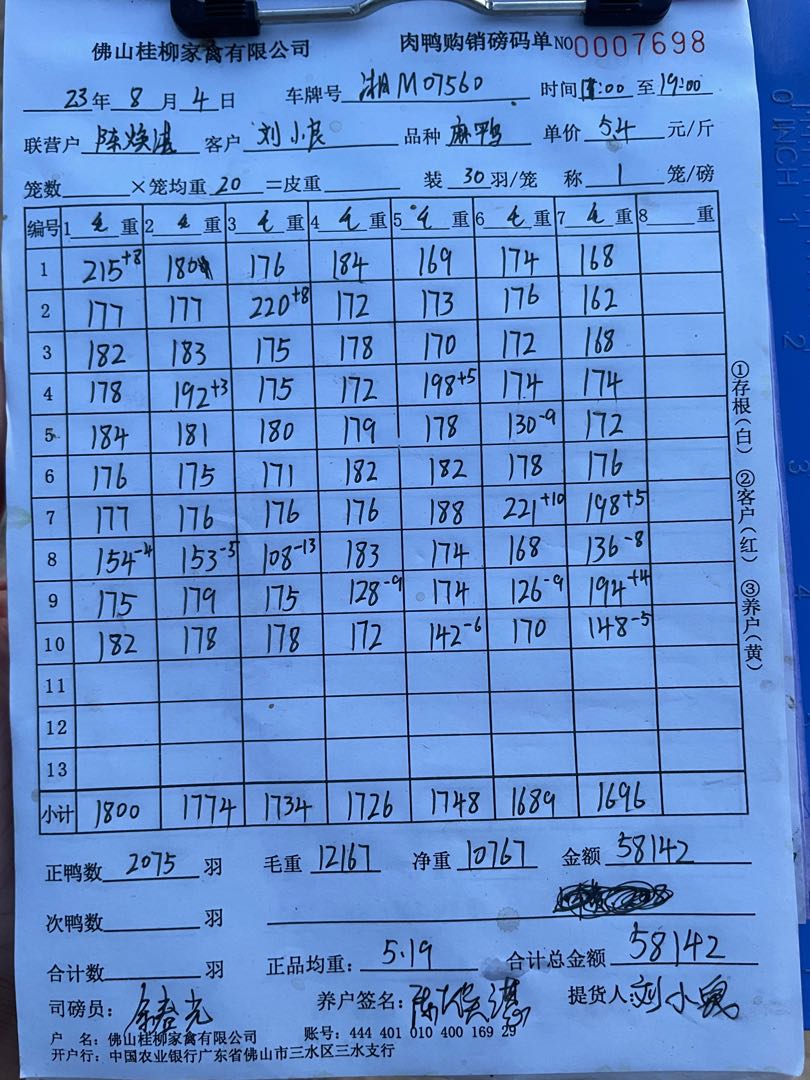 佛山桂柳家禽有限公司 肉鸭购销磅码单 NO 0007698
23年 8月 4日 车牌号 湘M07560 时间 :00 至 19:00
联营户 陈焕湛 客户 刘小良 品种 麻鸭 单价 5.4 元/斤
笼数 ×笼均重 20 =皮重 装 30 羽/笼 称 1 笼/磅
编号 1 毛 重 2 毛 重 3 毛 重 4 毛 重 5 毛 重 6 毛 重 7 毛 重 8 重
1 215+8 180 176 184 169 174 168
2 177 177 220+8 172 173 176 162
3 182 183 175 178 170 172 168
4 178 192+3 175 172 198+5 174 174
5 184 181 180 179 178 130-9 172
6 176 175 171 182 182 178 176
7 177 176 176 176 188 221+10 198+5
8 154-4 153-5 108-13 183 174 168 136-8
9 175 179 175 128-9 174 126-9 194+4
10 182 178 178 172 142-6 170 148-5
11
12
13
小计 1800 1774 1734 1726 1748 1689 1696
①存根(白) ②客户(红) ③养户(黄)
正鸭数 2075 羽 毛重 12167 净重 10767 金额 58142
次鸭数 羽
合计数 羽 正品均重: 5.19 合计总金额 58142
司磅员: 养户签名: 陈焕湛 提货人: 刘小良
户 名: 佛山桂柳家禽有限公司 账号: 444 401 010 400 169 29
开户行: 中国农业银行广东省佛山市三水区三水支行
0 INCH 1
2
3
4